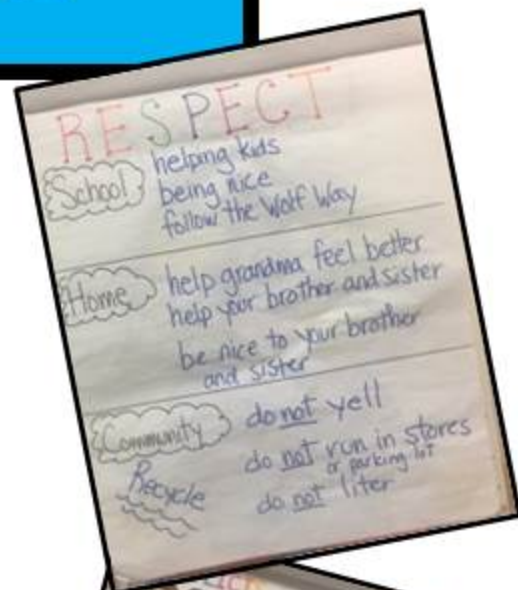 RESPECT
School
helping kids
being nice
follow the Wolf Way
Home
help grandma feel better
help your brother and sister
be nice to your brother
and sister
Community
do not yell
do not run in stores
or parking lot
do not liter
Recycle